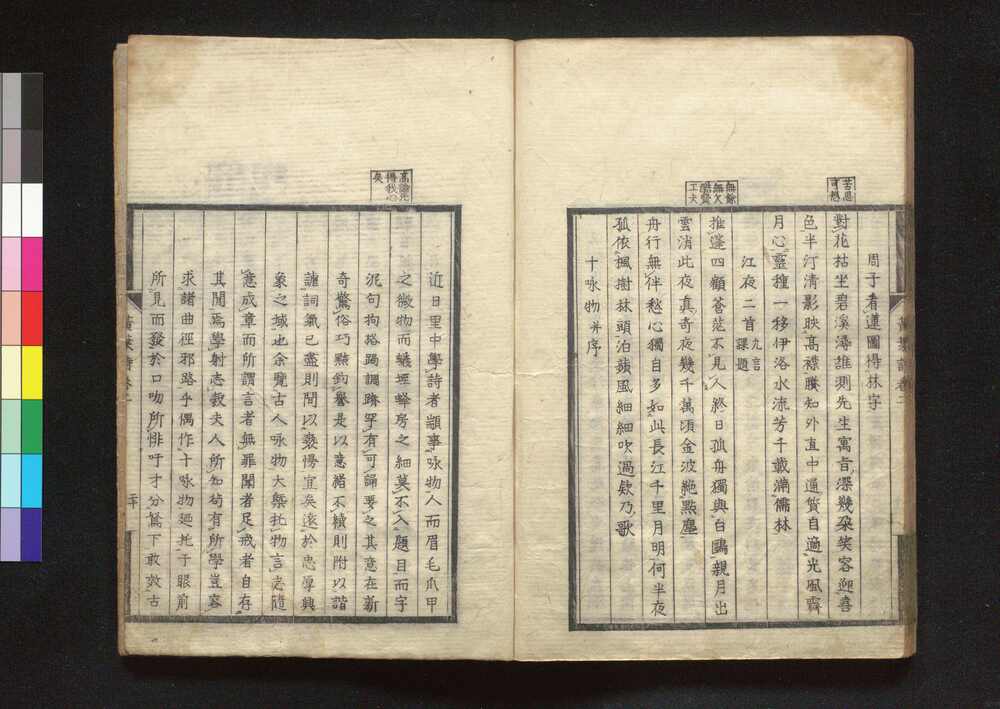 苦思
可想
周子看蓮圖得林字
對花枯坐碧溪潯誰測先生寓旨深幾朶笑容迎喜
色半汀清影映高襟賸知外直中通質自適光風霽
月心靈種一移伊洛水流芳千載滿儒林
無餘
無欠
工夫
江夜二首九言課題
推蓬四顧蒼茫不見人終日孤舟獨與白鷗親月出
雲消此夜真奇夜幾千萬頃金波絶點塵
舟行無伴愁心獨自多如此長江千里月明何半夜
孤依楓樹林頭泊蘋風細細吹過欸乃歌
十咏物并序
近日里中學詩者顓事咏物人而眉毛爪甲
高論先
得我心
矣
之微物而蟻垤蜂房之細莫不入題目而字
泥句拘搭踢調蹐罕有可誦要之其意在新
奇驚俗巧點鈎譽是以意猶不續則附以諧
謔詞氣已盡則間以褻慢宜矣遠於忠厚興
象之域也余覽古人咏物大槩托物言志隨
意成章而所謂言者無罪聞者足戒者自存
其間焉學射志彀夫人所知苟有所學豈容
求諸曲徑邪路乎偶作十咏物迺托于眼前
所見而發於口吻所悱吁才分駑下敢效古
二十